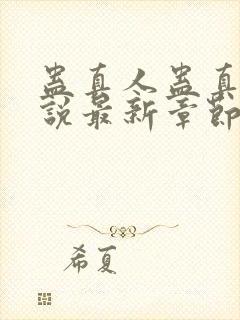 蛊真人蛊真
說最新章節
希夏